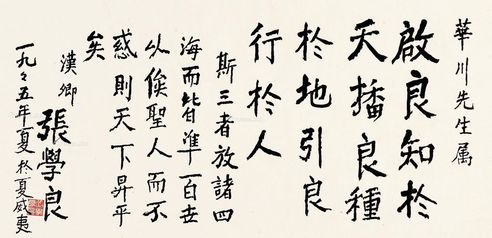 華川先生属
啟良知於
天播良種
於地引良
行於人
斯三者放諸四
海而皆準百世
以俟聖人而不
惑則天下昇平
矣
漢卿
張學良
一九九五年夏於夏威夷